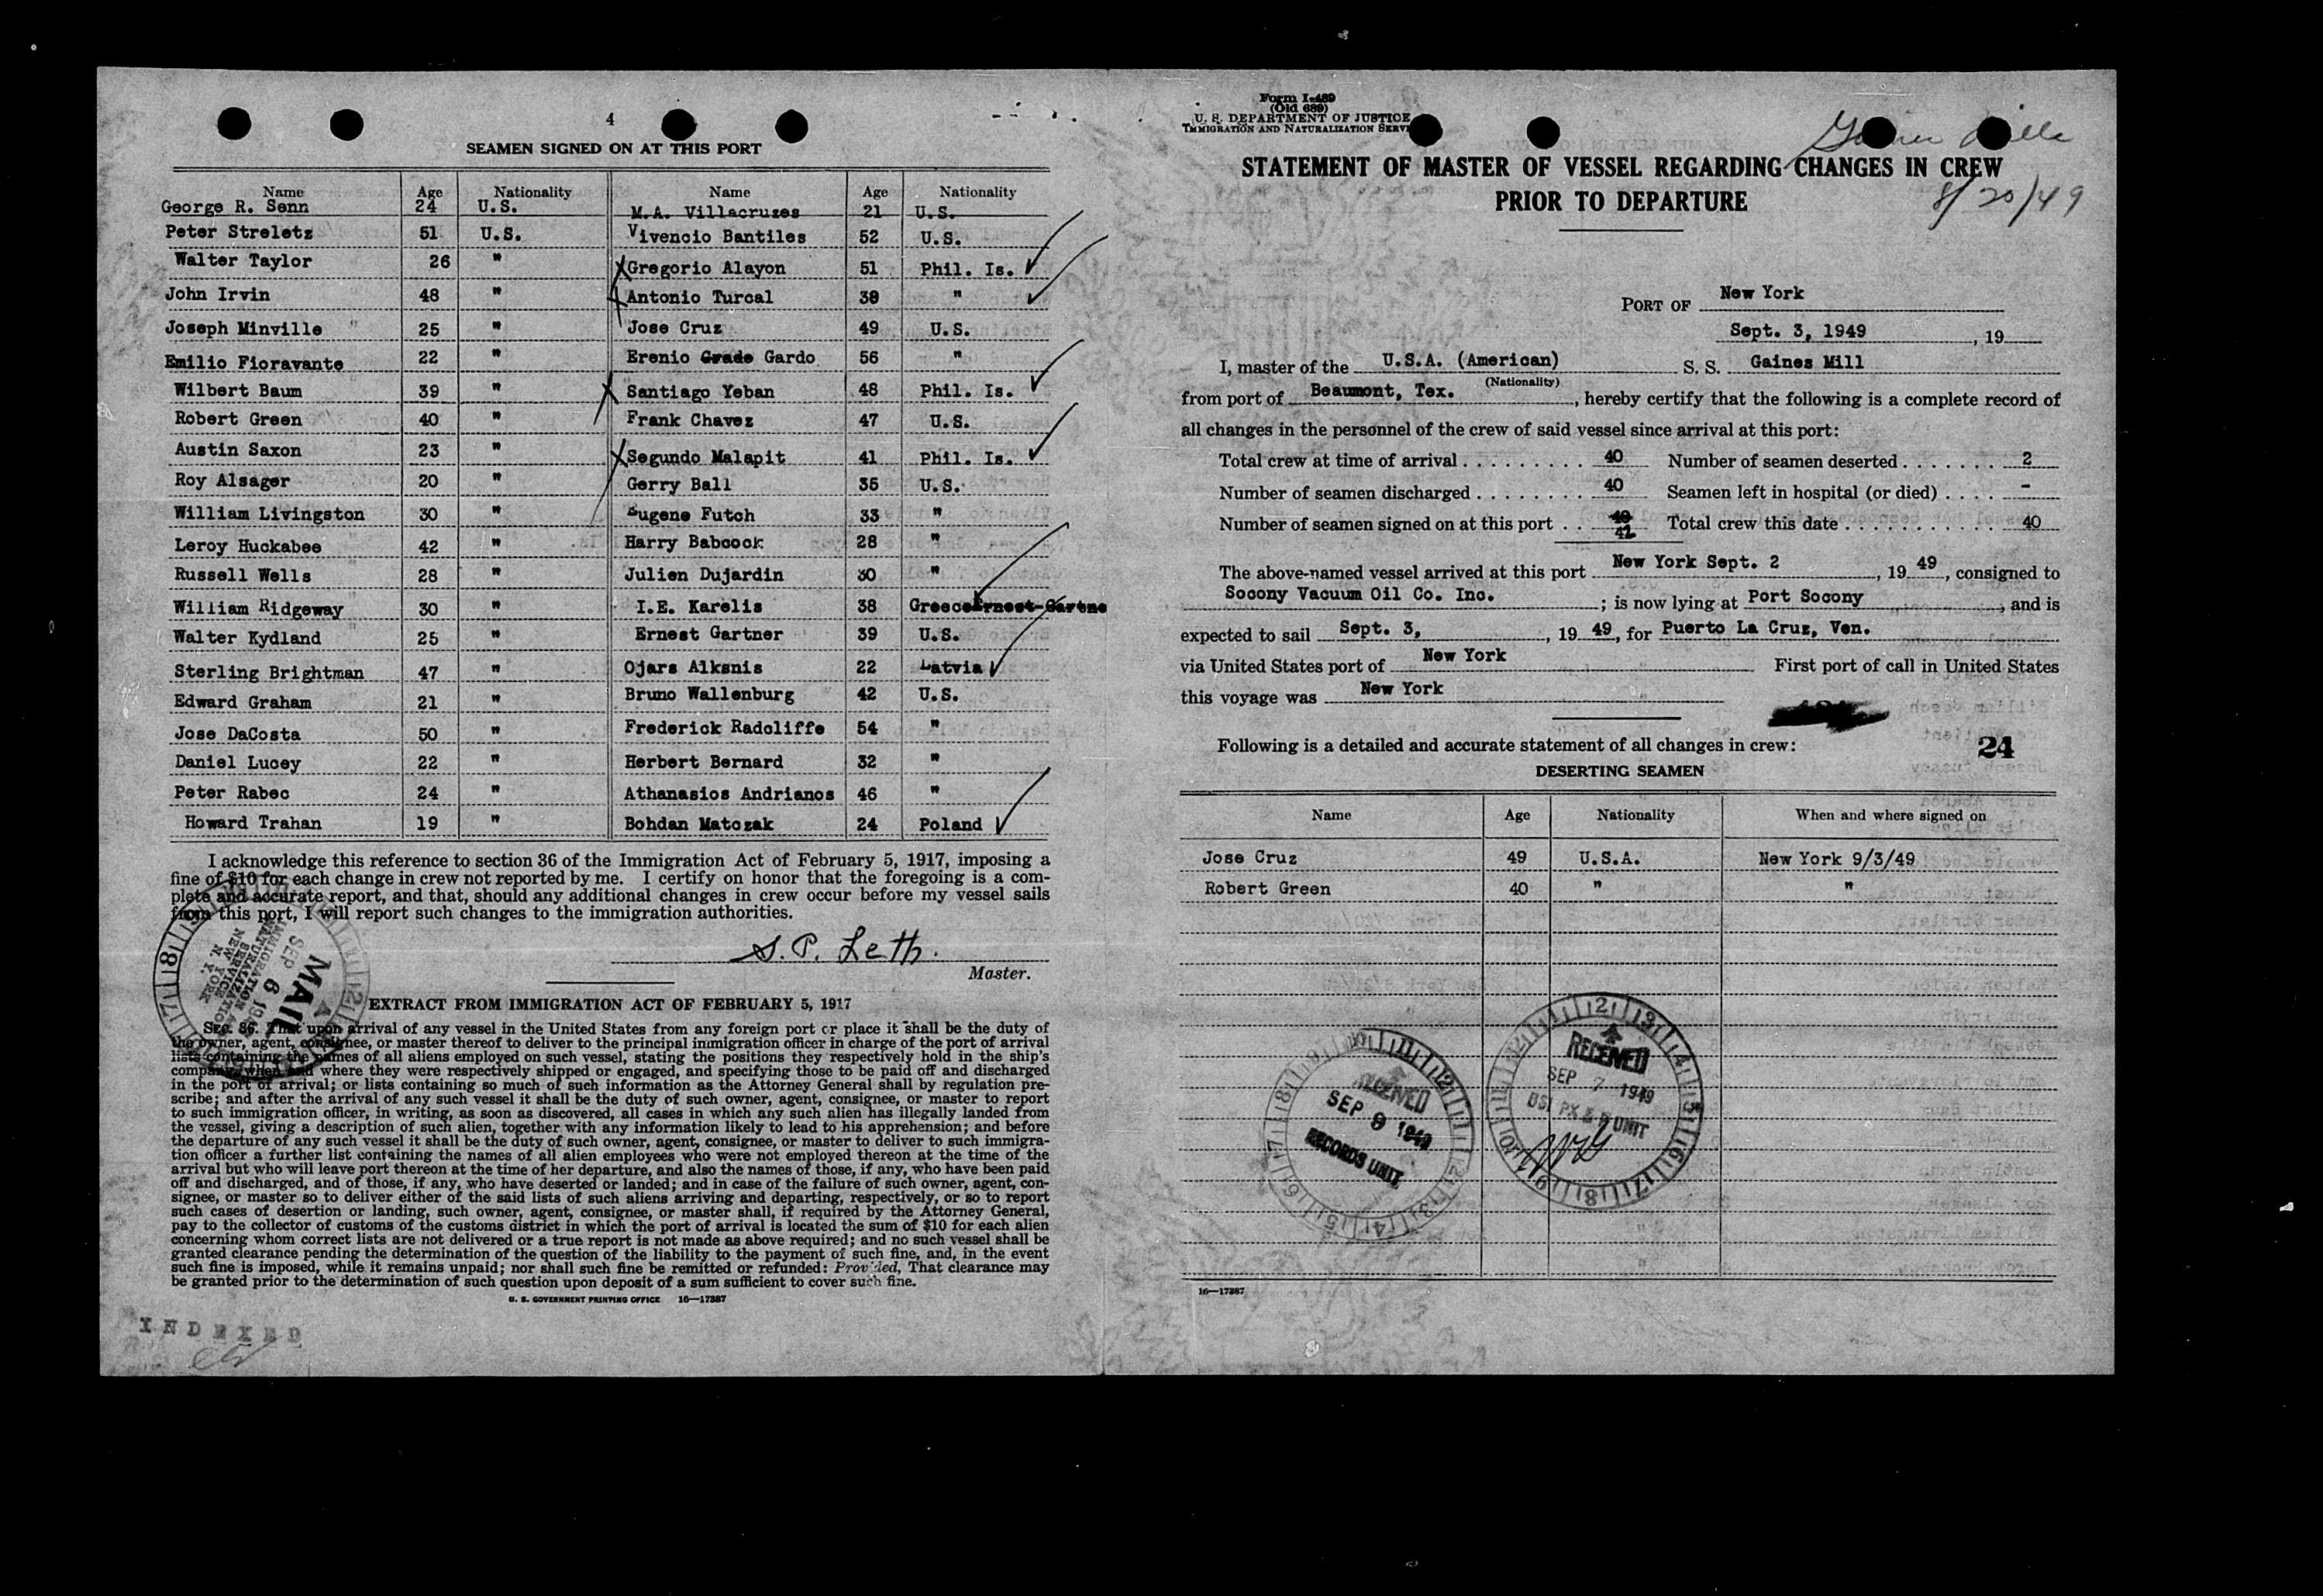 4
SEAMEN SIGNED ON AT THIS PORT
Name Age Nationality Name Age Nationality
George R. Senn 24 U.S. M.A. Villacruzes 21 U.S.
Peter Streletz 51 U.S. Vivencio Bantiles 52 U.S.
Walter Taylor 26 " Gregorio Alayon 51 Phil. Is.
John Irvin 48 " Antonio Turcal 38 "
Joseph Minville 25 " Jose Cruz 49 U.S.
Emilio Fioravante 22 " Erenio Grade Gardo 56 "
Wilbert Baum 39 " Santiago Yeban 48 Phil. Is.
Robert Green 40 " Frank Chavez 47 U.S.
Austin Saxon 23 " Segundo Malapit 41 Phil. Is.
Roy Alsager 20 " Gerry Ball 35 U.S.
William Livingston 30 " Eugene Futch 33 "
Leroy Huckabee 42 " Harry Babcock 28 "
Russell Wells 28 " Julien Dujardin 30 "
William Ridgeway 30 " I.E. Karelis 38 Greece Ernest Gartne
Walter Kydland 25 " Ernest Gartner 39 U.S.
Sterling Brightman 47 " Ojars Alksnis 22 Latvia
Edward Graham 21 " Bruno Wallenburg 42 U.S.
Jose DaCosta 50 " Frederick Radcliffe 54 "
Daniel Lucey 22 " Herbert Bernard 32 "
Peter Rabec 24 " Athanasios Andrianos 46 "
Howard Trahan 19 " Bohdan Matczak 24 Poland
I acknowledge this reference to section 36 of the Immigration Act of February 5, 1917, imposing a
fine of $10 for each change in crew not reported by me. I certify on honor that the foregoing is a com-
plete and accurate report, and that, should any additional changes in crew occur before my vessel sails
from this port, I will report such changes to the immigration authorities.
S. P. Leth.
Master.
MAIL
SEP 6
IMMIGRATION
NATURALIZATION
SERVICE
NEW YORK
N. Y.
EXTRACT FROM IMMIGRATION ACT OF FEBRUARY 5, 1917
SEC. 36. That upon arrival of any vessel in the United States from any foreign port or place it shall be the duty of
the owner, agent, consignee, or master thereof to deliver to the principal immigration officer in charge of the port of arrival
lists containing the names of all aliens employed on such vessel, stating the positions they respectively hold in the ship's
company, when and where they were respectively shipped or engaged, and specifying those to be paid off and discharged
in the port of arrival; or lists containing so much of such information as the Attorney General shall by regulation pre-
scribe; and after the arrival of any such vessel it shall be the duty of such owner, agent, consignee, or master to report
to such immigration officer, in writing, as soon as discovered, all cases in which any such alien has illegally landed from
the vessel, giving a description of such alien, together with any information likely to lead to his apprehension; and before
the departure of any such vessel it shall be the duty of such owner, agent, consignee, or master to deliver to such immigra-
tion officer a further list containing the names of all alien employees who were not employed thereon at the time of the
arrival but who will leave port thereon at the time of her departure, and also the names of those, if any, who have been paid
off and discharged, and of those, if any, who have deserted or landed; and in case of the failure of such owner, agent, con-
signee, or master so to deliver either of the said lists of such aliens arriving and departing, respectively, or so to report
such cases of desertion or landing, such owner, agent, consignee, or master shall, if required by the Attorney General,
pay to the collector of customs of the customs district in which the port of arrival is located the sum of $10 for each alien
concerning whom correct lists are not delivered or a true report is not made as above required; and no such vessel shall be
granted clearance pending the determination of the question of the liability to the payment of such fine, and, in the event
such fine is imposed, while it remains unpaid; nor shall such fine be remitted or refunded: Provided, That clearance may
be granted prior to the determination of such question upon deposit of a sum sufficient to cover such fine.
U. S. GOVERNMENT PRINTING OFFICE 16—17387
INDEXED
Form I-489
(Old 689)
U. S. DEPARTMENT OF JUSTICE
IMMIGRATION AND NATURALIZATION SERVI
8/20/49
STATEMENT OF MASTER OF VESSEL REGARDING CHANGES IN CREW
PRIOR TO DEPARTURE
PORT OF New York
Sept. 3, 1949, 19
I, master of the U.S.A. (American) S. S. Gaines Mill
(Nationality)
from port of Beaumont, Tex., hereby certify that the following is a complete record of
all changes in the personnel of the crew of said vessel since arrival at this port:
Total crew at time of arrival . . . . . . . . . 40 Number of seamen deserted . . . . . . . 2
Number of seamen discharged . . . . . . . . 40 Seamen left in hospital (or died) . . . . -
Number of seamen signed on at this port . . 40 42 Total crew this date . . . . . . . . . . . 40
The above-named vessel arrived at this port New York Sept. 2, 19 49, consigned to
Socony Vacuum Oil Co. Inc. ; is now lying at Port Socony, and is
expected to sail Sept. 3, , 19 49, for Puerto La Cruz, Ven.
via United States port of New York First port of call in United States
this voyage was New York
Following is a detailed and accurate statement of all changes in crew:
24
DESERTING SEAMEN
Name Age Nationality When and where signed on
Jose Cruz 49 U.S.A. New York 9/3/49
Robert Green 40 " "
RECEIVED
SEP 9 1949
RECORDS UNIT
RECEIVED
SEP 7 1949
BSI PX & D UNIT
16—17387